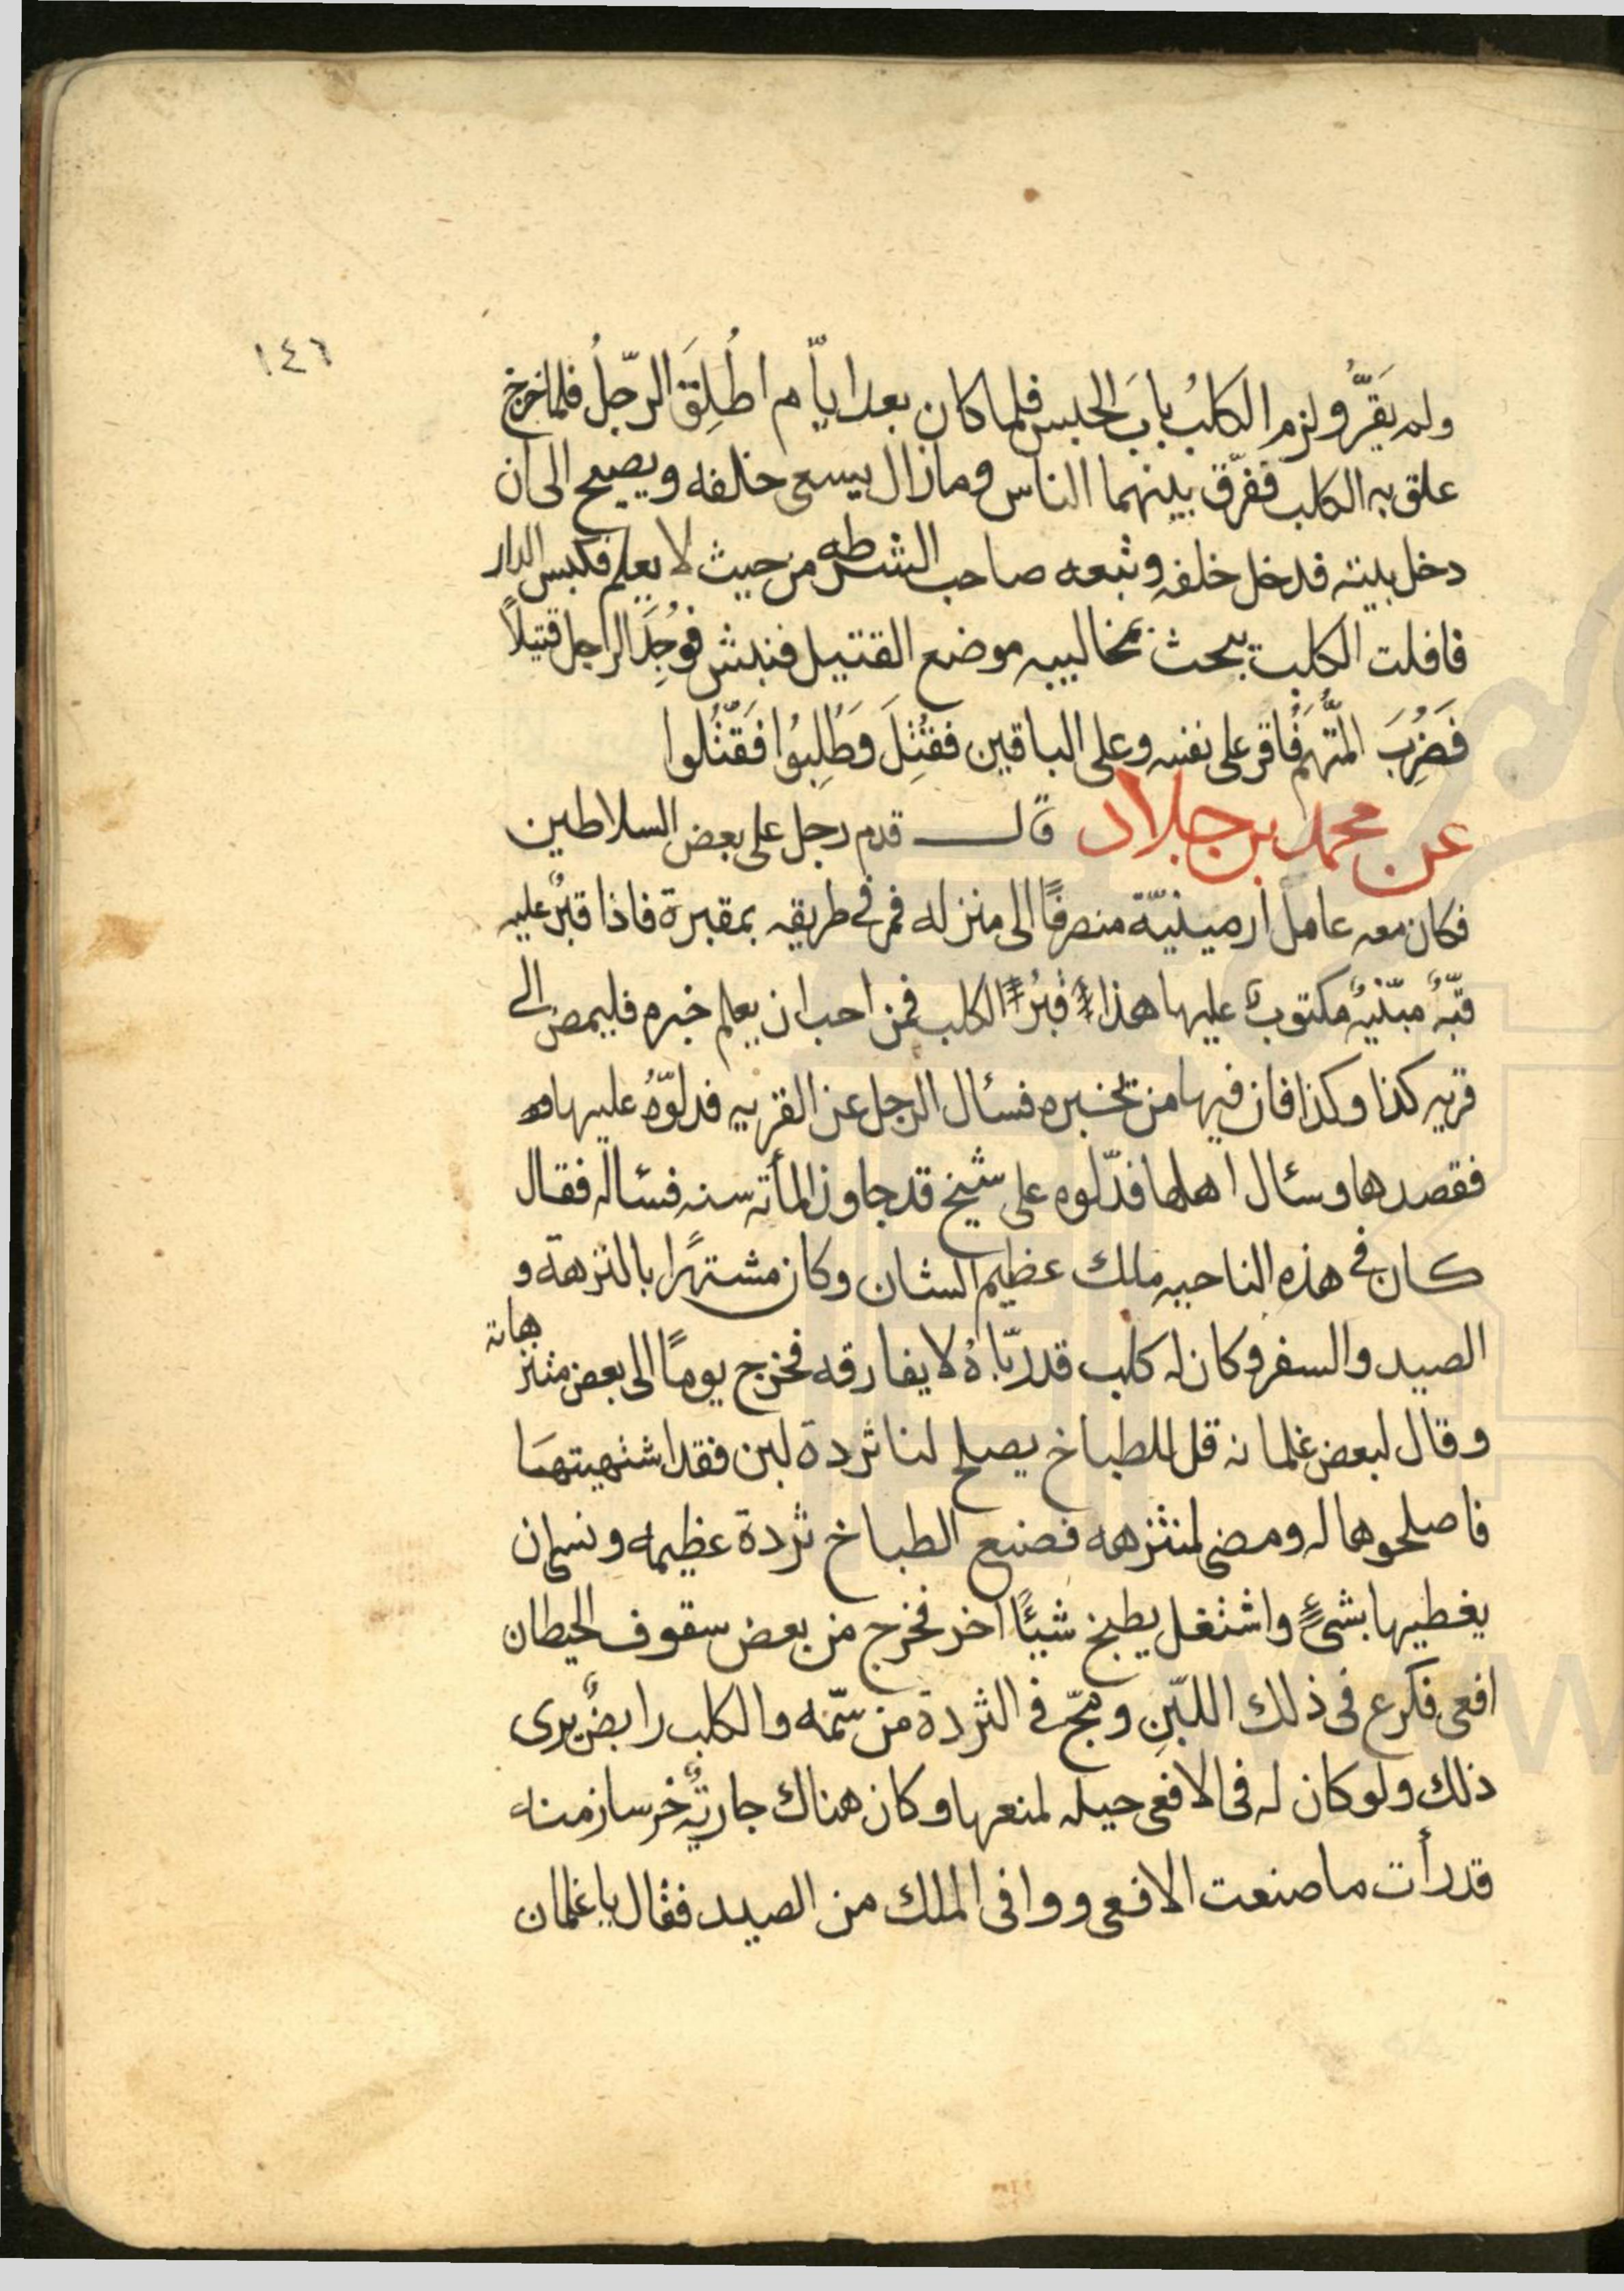 ١٤٦
ولم يَقَرُّ ولزم الكلبُ بابَ الحبس فلما كان بعد ايأّم اطُلِقَ الرّجلُ فلما خرج
علق به الكلب ففرّق بينهما الناس وما زال يسعى خلفه ويصيح الى ان
دخل بيته فدخل خلفه وتبعه صاحب الشرطه من حيث لا يعلم فكبس الدار
فاقلت الكلب يبحث بمخاليبه موضع القتيل فنبش فوُجِدَ الراجل قتيلاً
فَضُرِبَ المتَّهَمُ فاقر على نفسه وعلى الباقين فقُتِلَ وَطُلِبُوا فَقَتّلُوا
عن محمد بن جلاد قال قدم رجل على بعض السلاطين
فكان معه عامل ارمينيّة منصرفًا الى منزله فمر في طريقه بمقبرة فاذا قبرٌ عليه
قبّهٌ مبّنيهٌ مكتوبٌ عليها هذا قبُرُ الكلب فمن احب ان يعلم خبره فليمض الى
قريه كذا وكذا فان فيها من تخبره فسئال الرجل عن القريه فدلوّهُ عليها
فقصدها وسئال اهلها فدّلوه على شيخ قد جاوز المأته سنه فسئاله فقال
كان في هذه الناحيه ملك عظيم الشان وكان مشتهرًا بالنزهة و
الصيد والسفر وكان له كلب قد ربّاهُ لا يفارقه فخرج يومًا الى بعض متنزهاته
وقال لبعض غلمانه قل للطباخ يصلح لنا ثردة لبن فقد اشتهيتها
فاصلحوها له ومضى لمنتزهه فصنع الطباخ ثردة عظيمه ونسى ان
يغطيها بشيءٍ واشتغل يطبخ شيئًا اخر فخرج من بعض سقوف الحيطان
افعى فكرع فى ذلك اللبّنِ ومجّ فى الثردة من سّمه والكلب رابضٌ يرى
ذلك ولو كان له فى الافعى حيله لمنعها وكان هناك جاريهٌ خرسا زمنه
قد رأت ما صنعت الافعى ووافى الملك من الصيد فقال يا غلمان